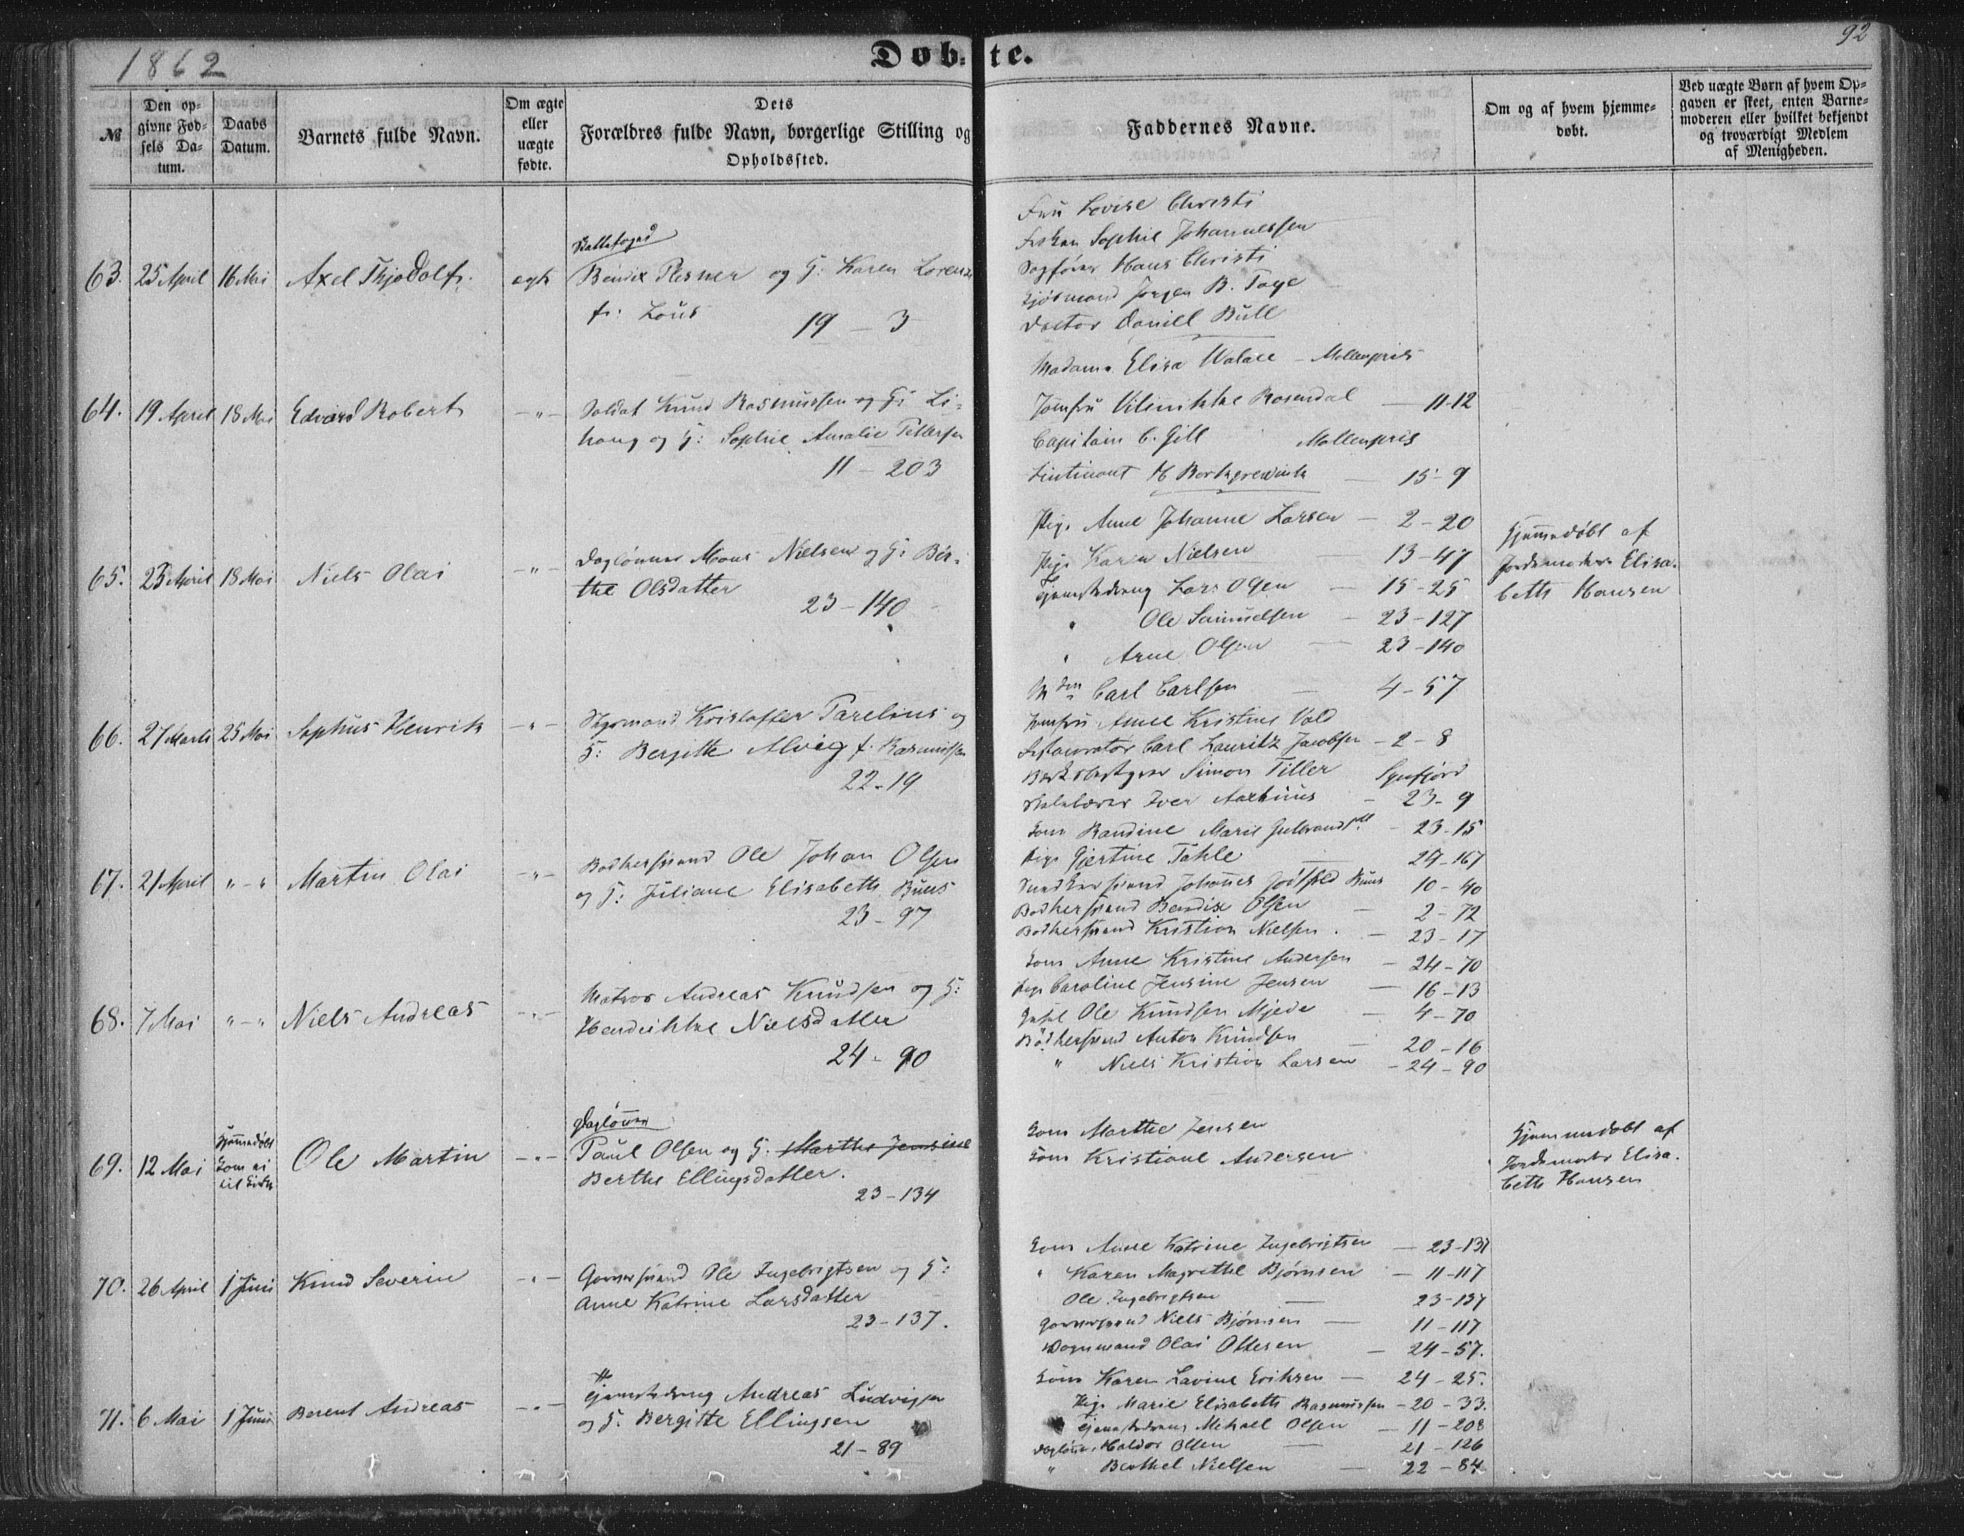 1862
Døbte.
92
№
Den opgivne Fødsels Datum.
Daabs Datum.
Barnets fulde Navn.
Om ægte eller uægte fødte.
Dets Forældres fulde Navn, borgerlige Stilling og Opholdssted.
Faddernes Navne.
Om og af hvem hjemmedøbt.
Ved uægte Børn af hvem Opgaven er skeet, enten Barnemoderen eller hvilket bekjendt og troværdigt Medlem af Menigheden.
63. 25 April 16 Mai Axel Thjodolf
ægte
Bendix Plesner og H: Karen Lorenz
f: Lous 19 - 3
Fru Lovise Christi
Frøken Sophie Johannessen
Sagfører Hans Christi
Jørgen B. Faye
Doctor Daniel Bull
64. 19 April 18 Mai Edvard Robert -"-
Soldat Knud Rasmussen og H: Sophie Amalie Pettersen
11 - 203
Madame Elisa Walace - Møllenpris
Jomfru Rosendal - 11-12
Capitain C. Gill Møllenpris
Lieutinant - 15-9
65. 23 April 18 Mai Niels Olai -"-
Dagløner Mons Nielsen og H: Ber-
the Olsdatter
23-140
Pige Anne Johanne Larsen - 2-20
Pige Karen Nielsen 13-47
Tjenestedreng Lars Olsen - 15-25
" Ole Samuelsen - 23-127
" Arne Olsen - 23-140
Hjemmedøbt af
Jordemoder Elisa-
beth Hansen
66. 27 Marts 25 Mai Sophus Henrik -"-
Styrmand Kristoffer Parelius og
H: Bergitte Alvig f. Rasmussen
22-19
Carl Carlsen - 4-57
Jomfru Anne Kristine Vold
Carl Lauritz Jacobsen - 2-8
Simon Tiller
Iver Aarhuus - 23-9
67. 21 April "-" Martin Olai -"-
Bødkersvend Ole Johan Olsen
og H: Juliane Elisabeth Buus
23-97
Kone Randine Marie - 23-15
Pige Gjertine Tahle - 24-167
Johannes Buus 10-40
Bødkersvend Bendix Olsen - 2-72
Bødkersvend Kristian Nielsen - 23-17
68. 7 Mai "-" Niels Andreas -"-
Matros Andreas Knudsen og H:
Hendrikke Nielsdatter
24-90
Kone Anne Kristine Andersen - 24-70
Pige Caroline Jensine Jensen - 16-13
Ole Knudsen Mjede - 4-70
Bødkersvend Anton Knudsen - 20-16
" Niels Kristian Larsen - 24-90
69. 12 Mai
Hjemmedøbt
kom ei
til Kirke
Ole Martin -"-
Dagløner
Paul Olsen og H. Marthe Jensine
Berthe Ellingsdatter.
23-134
Kone Marthe Jensen
Kone Kristiane Andersen
Hjemmedøbt af
Jordemoder Elisa-
beth Hansen
70. 26 April 1 Juni Knud Severin -"-
Garversvend Ole Ingebrigtsen og H:
Anne Katrine Larsdatter
23-137.
Kone Anne Katrine Ingebrigtsen - 23-137
" Karen Magrethe Bjørnsen - 11-117
Ole Ingebrigtsen - 23-137
Garversvend Niels Bjørnsen - 11-117
Vognmand Olai Ottesen - 24-57.
71. 6 Mai 1 Juni Berent Andreas -"-
Tjenestedreng Andreas Ludvigsen
og H. Bergitte Ellingsen
21-89
Kone Karen Lavine Eriksen - 24-25.
Pige Marie Elisabeth Rasmussen - 20-33.
Tjenestedreng Mikael Olsen - 11-208
Dagløner Haldor Olsen - 21-126
" Berthel Nielsen - 22-84